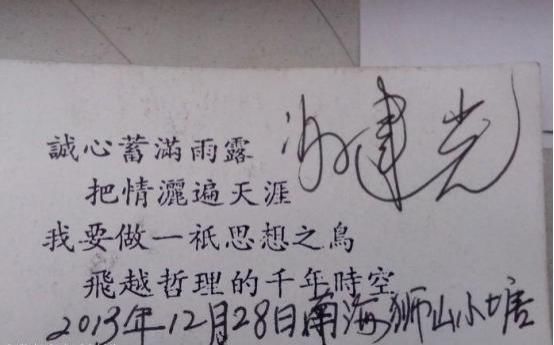 誠心蓄滿雨露
把情灑遍天涯
我要做一祇思想之鳥
飛越哲理的千年時空
建光
2013年12月28日南海狮山小塘